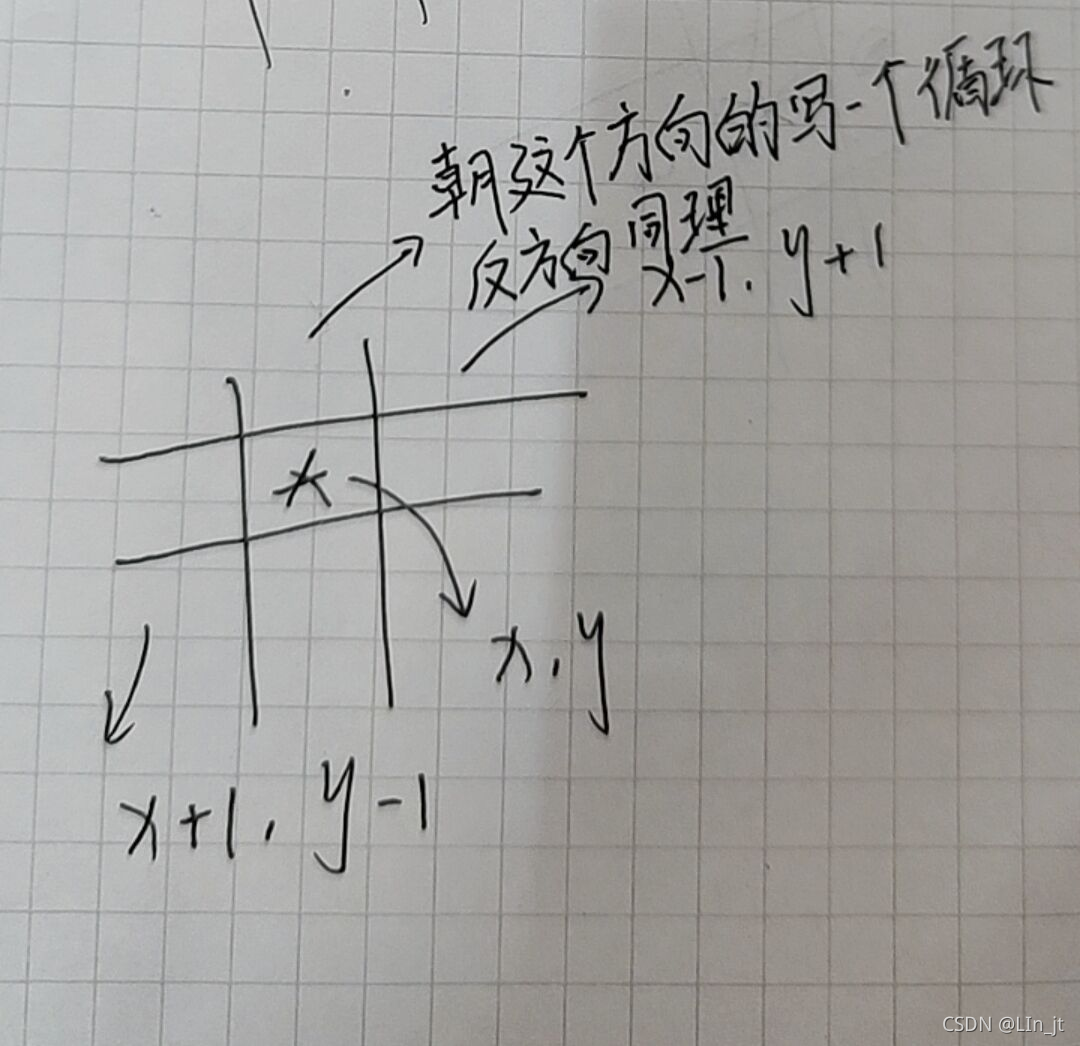 朝这个方向的写一个循环
反方向同理
x-1, y+1
*
x, y
x+1, y-1
CSDN @LIn_jt